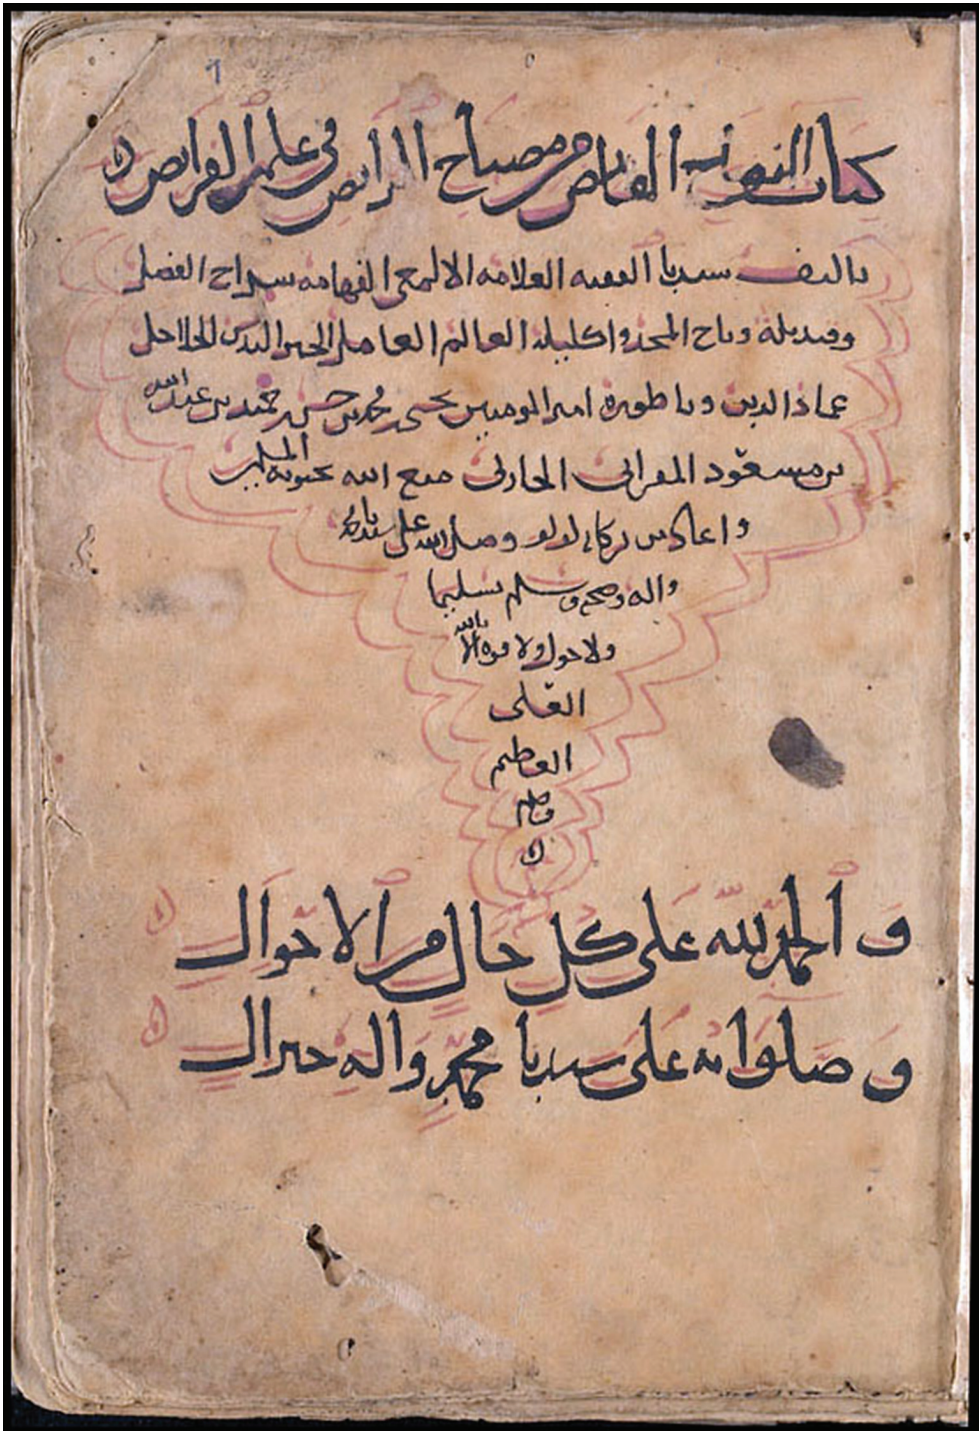 كتاب النور الفايض من مصباح الرايض في علم الفرايض
تاليف سيدنا الفقيه العلامه الالمعي الفهامه سراج الفضل
وقنديله وتاج المجد واكليله العالم العامل الحبر البدر الحلاحل
عماد الدين وناظورة امير المومنين يحيى بن محمد بن حسن بن حميد بن عبد الله
بن مسعود المقرائي الحارثي متع الله بحيوته المسلمين
واعاد من بركاته وصلى الله على سيدنا محمد
واله وصحبه وسلم تسليما
ولا حول ولا قوه الا بالله
العلي
العظيم
والحمد لله على كل حال من الاحوال
وصلواته على سيدنا محمد واله خير ال